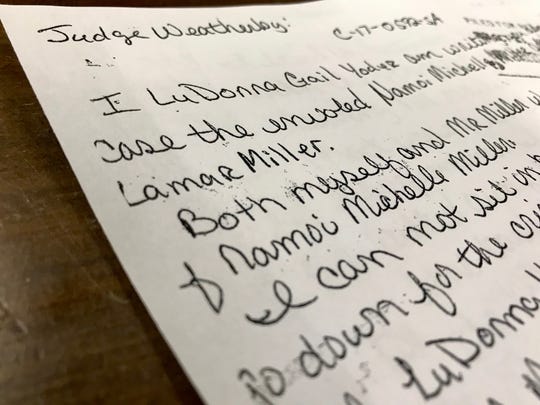 Judge Weatherby: C-17-0522-SA
I LuDonna Gail Yoder am
case the envoled Namoi Michelle
Lamar Miller.
Both myself and Mr Miller
& Namoi Michelle Miller.
I can not sit in
Go down for the
LuDonna